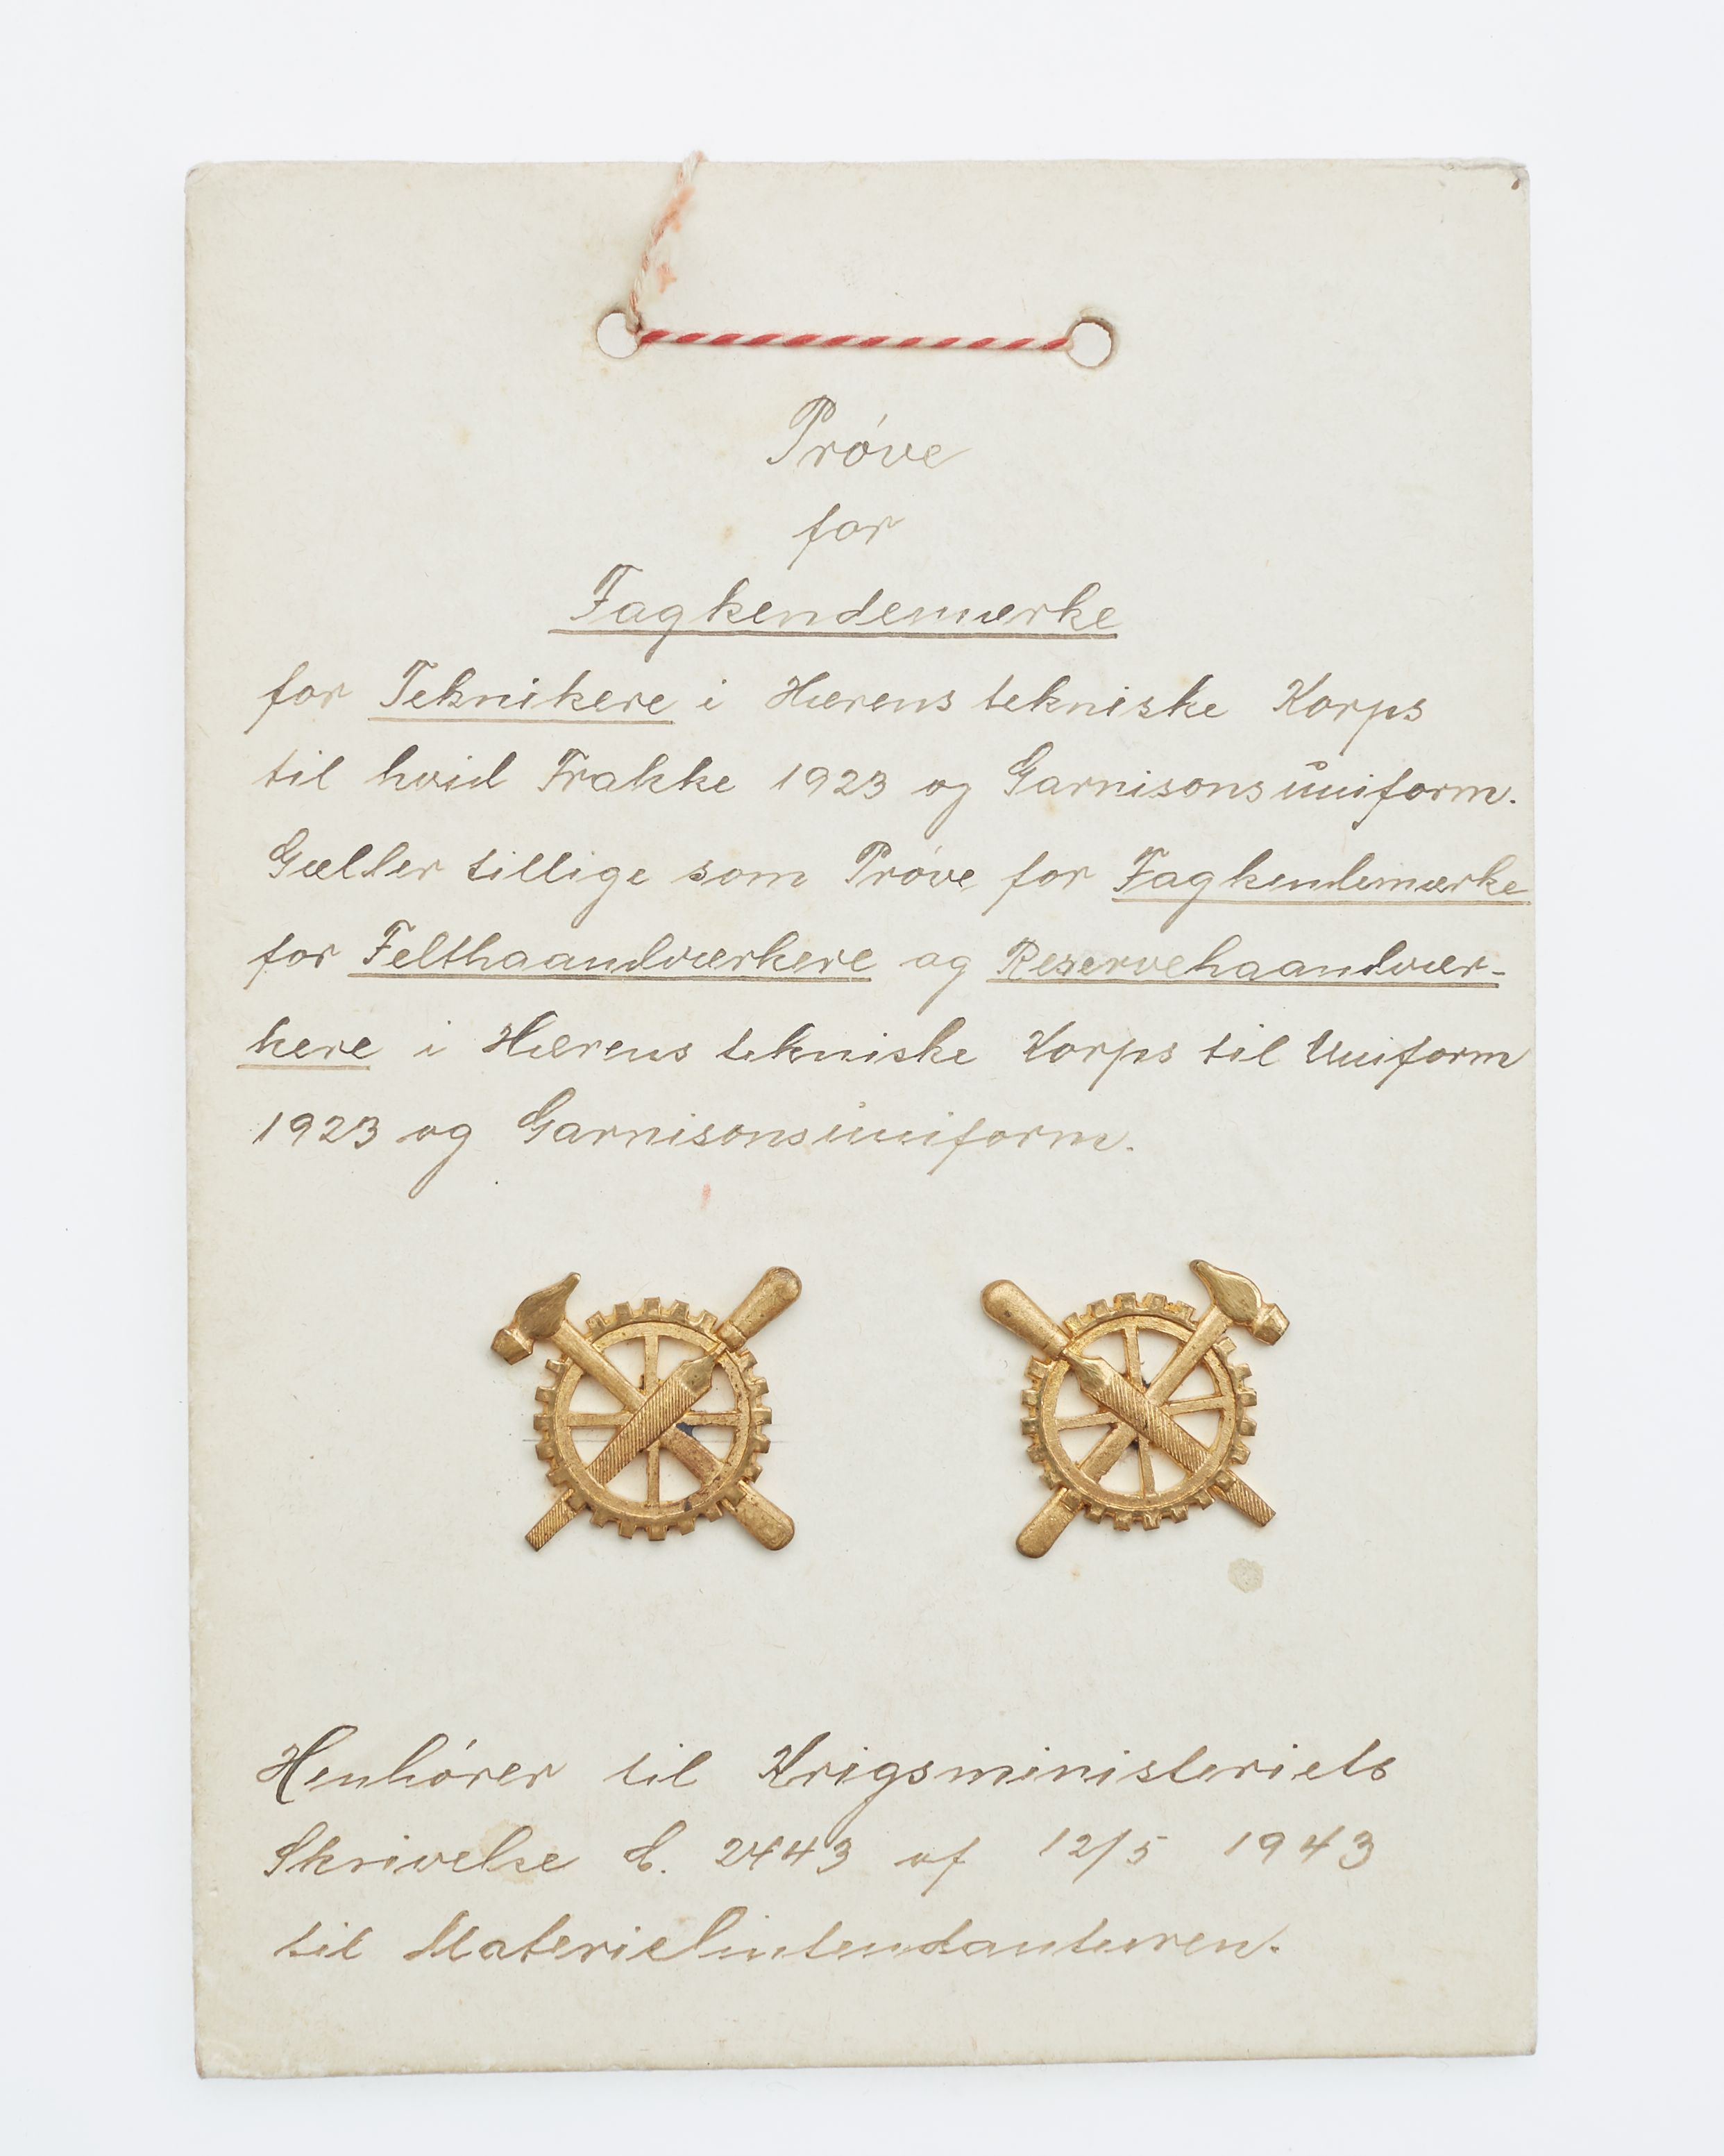 Prøve
for
Fagkendemærke
for Teknikere i Hærens tekniske Korps
til hvid Frakke 1923 og Garnisonsuniform.
Gælder tillige som Prøve for Fagkendemærke
for Felthaandværkere og Reservehaandvær-
kere i Hærens tekniske Korps til Uniform
1923 og Garnisonsuniform.
Henhører til Krigsministeriets
Skrivelse 2443 af 12/5 1943
til Materielintendanturen.